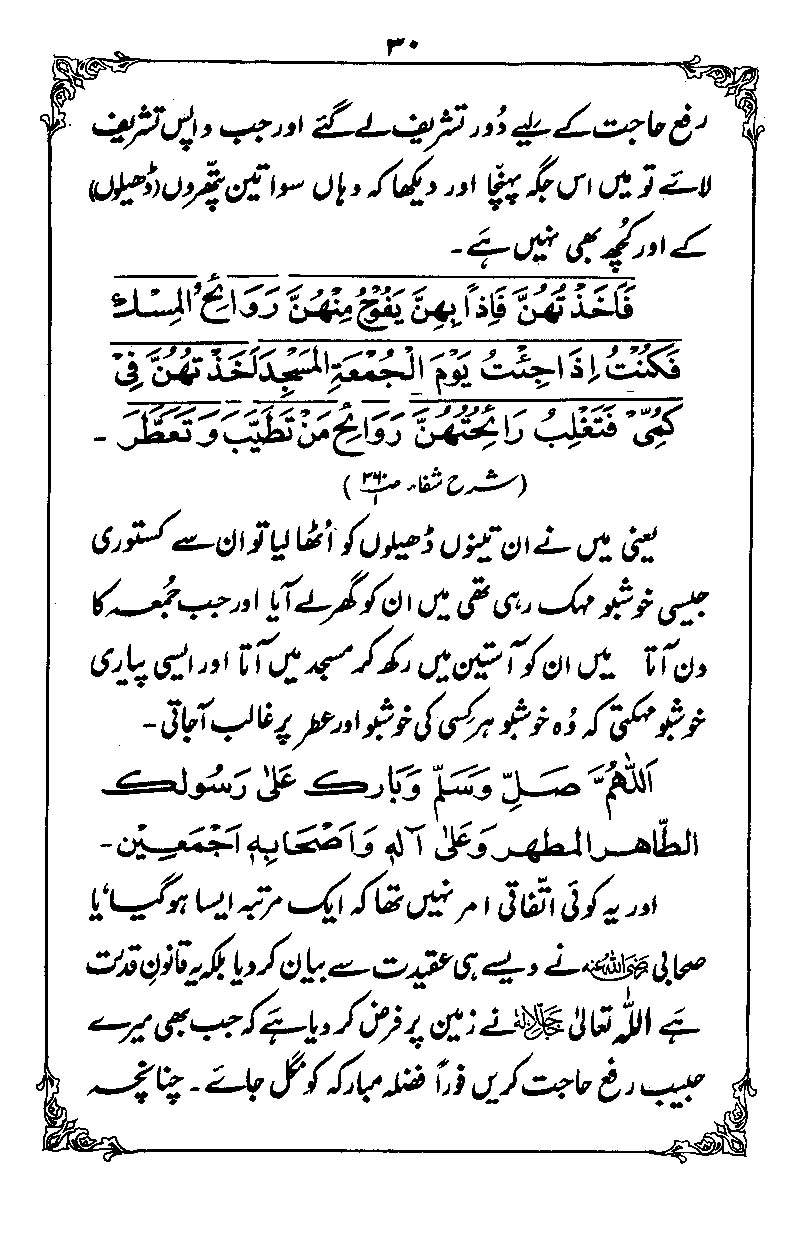 ۳۰
رفع حاجت کے لیے دُور تشریف لے گئے اور جب واپس تشریف
لائے تو میں اس جگہ پہنچا اور دیکھا کہ وہاں سوا تین پتھروں (ڈھیلوں)
کے اور کُچھ بھی نہیں ہے۔
فَاَخَذْتُهُنَّ فَاِذاً بِهِنَّ يَفُوْحُ مِنْهُنَّ رَوَائِحُ الْمِسْكِ
فَكُنْتُ اِذَا جِئْتُ يَوْمَ الْجُمْعَةِ الْمَسْجِدَ اَخَذْتُهُنَّ فِیْ
كُمِّیْ فَتَغْلِبُ رَائِحَتُهُنَّ رَوَائِحَ مَنْ تَطَيَّبَ وَ تَعَطَّرَ۔
(شرح شفاء ص ۳۶۰/۱)
یعنی میں نے ان تینوں ڈھیلوں کو اُٹھا لیا تو ان سے کستوری
جیسی خوشبو مہک رہی تھی میں ان کو گھر لے آیا اور جب جُمعہ کا
دن آتا میں ان کو آستین میں رکھ کر مسجد میں آتا اور ایسی پیاری
خوشبو مہکتی کہ وُہ خوشبو ہر کسی کی خوشبو اور عطر پر غالب آجاتی۔
اَللّٰهُمَّ صَلِّ وَسَلِّمْ وَبَارِك عَلىٰ رَسُولك
الطّاهر المطهر وَعَلىٰ آلهٖ وَاَصْحَابِهٖ اَجْمَعِيْن۔
اور یہ کوئی اتّفاقی امر نہیں تھا کہ ایک مرتبہ ایسا ہوگیا، یا
صحابی رضی اللہ عنہ نے ویسے ہی عقیدت سے بیان کر دیا بلکہ یہ قانونِ قدرت
ہے اللّٰہ تعالیٰ جل جلالہ نے زمین پر فرض کر دیا ہے کہ جب بھی میرے
حبیب رفع حاجت کریں فوراً فضلہ مبارکہ کو نگل جائے۔ چنانچہ